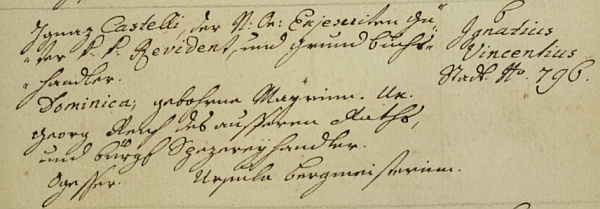 Ignaz Castelli, der N: Oe: Exjesuiten Gü-
-ter k. k. Revident, und Grundbuchs-
-handler.
Dominica, gebohrne Mayrinn. Ux.
Georg Reich des aussern Raths,
und bürgl Spezereyhandler.
Ogesser. Ursula Bergmeisterinn.
6
Ignatius
Vincentius
Stadt No. 796.